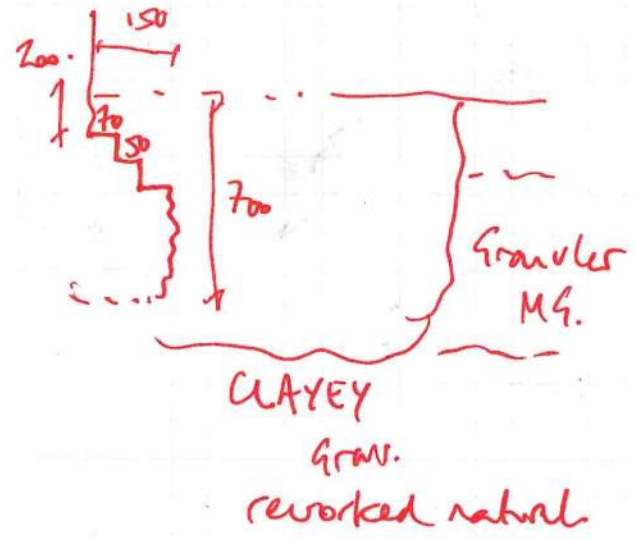 150
200.
70
50
700
Granular
MG.
CLAYEY
Grav.
reworked natural.